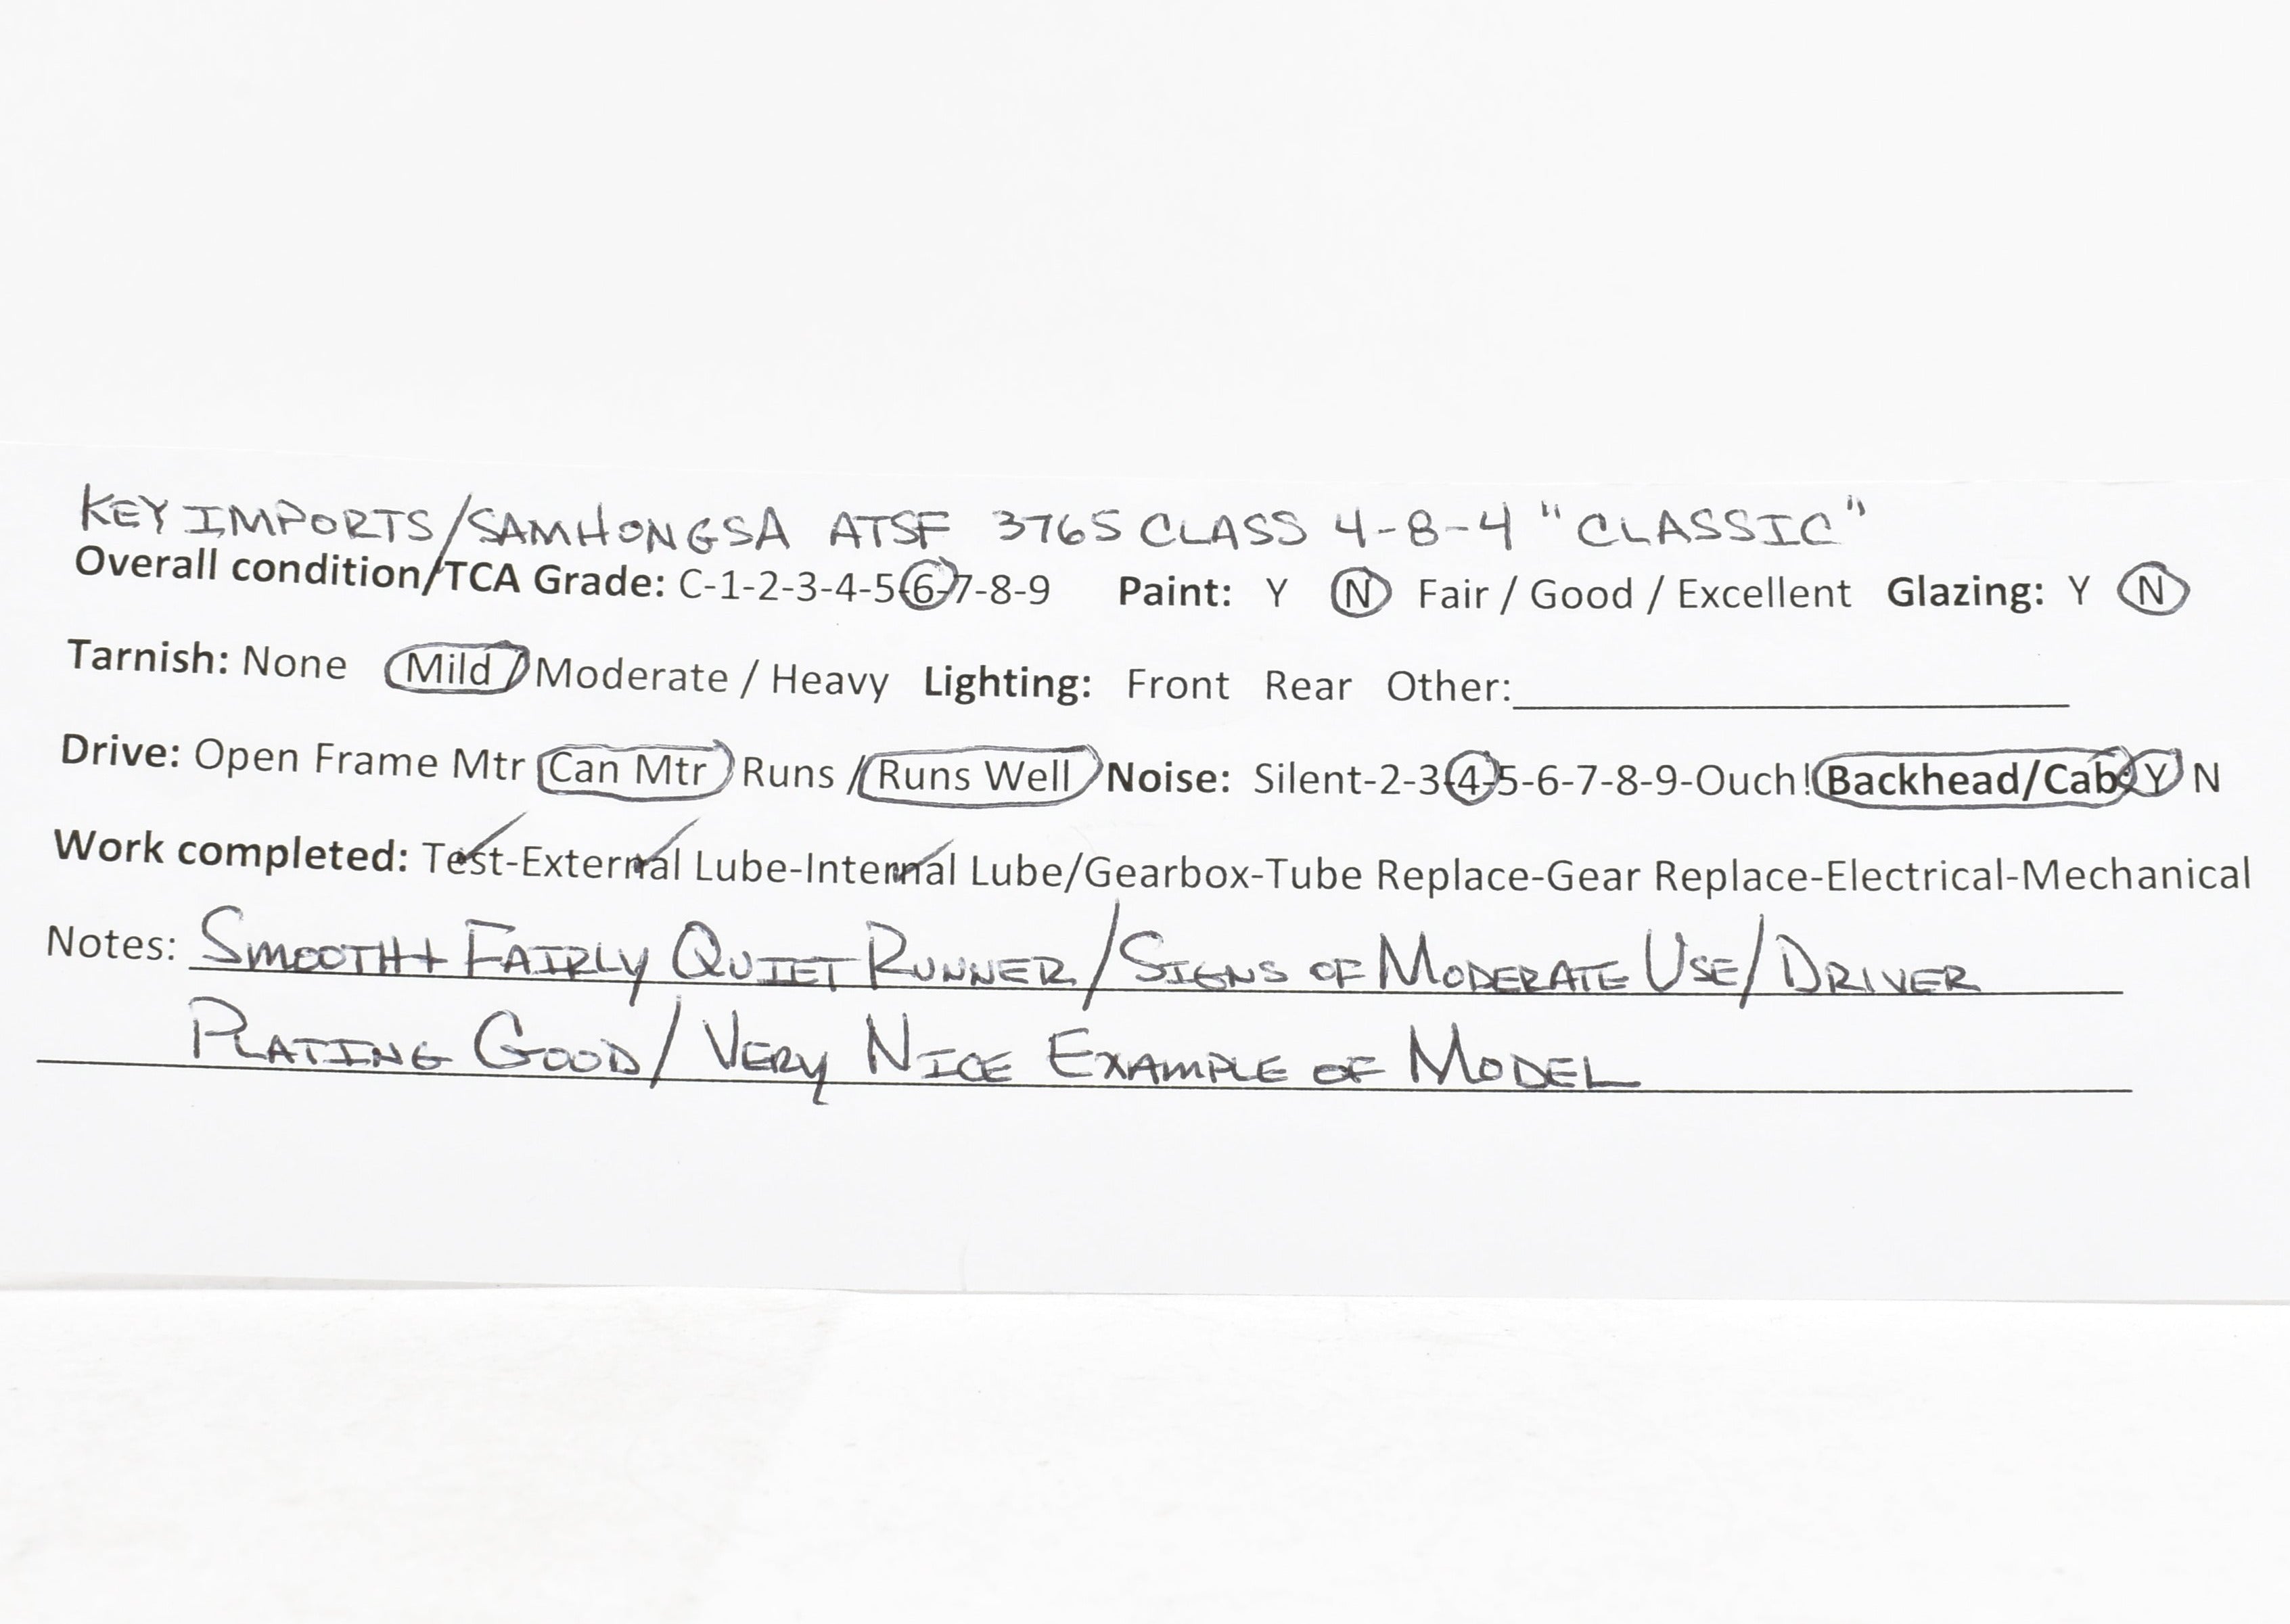 KEY IMPORTS/SAMHONGSA ATSF 3765 CLASS 4-8-4 "CLASSIC"
Overall condition/TCA Grade: C-1-2-3-4-5-6-7-8-9 Paint: Y N Fair / Good / Excellent Glazing: Y N
Tarnish: None Mild / Moderate / Heavy Lighting: Front Rear Other:
Drive: Open Frame Mtr Can Mtr Runs / Runs Well Noise: Silent-2-3-4-5-6-7-8-9-Ouch! Backhead/Cab: Y N
Work completed: Test-External Lube-Internal Lube/Gearbox-Tube Replace-Gear Replace-Electrical-Mechanical
Notes: SMOOTH + FAIRLY QUIET RUNNER/SIGNS OF MODERATE USE/DRIVER
PLATING GOOD/VERY NICE EXAMPLE OF MODEL